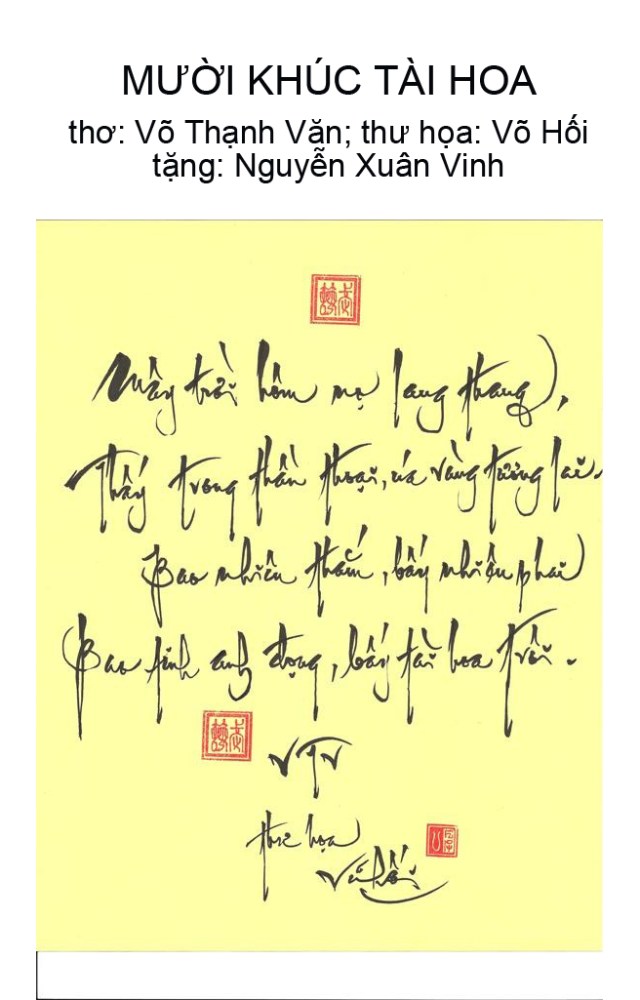 MƯỜI KHÚC TÀI HOA
thơ: Võ Thạnh Văn; thư họa: Võ Hối
tặng: Nguyễn Xuân Vinh
Mây trời hôm nọ lang thang,
Thấy trong thần thoại, úa vàng tương lai.
Bao nhiêu thắm, bấy nhiêu phai
Bao tinh anh đọng, bấy tài hoa trôi.
VTV
thư họa
Vũ Hối